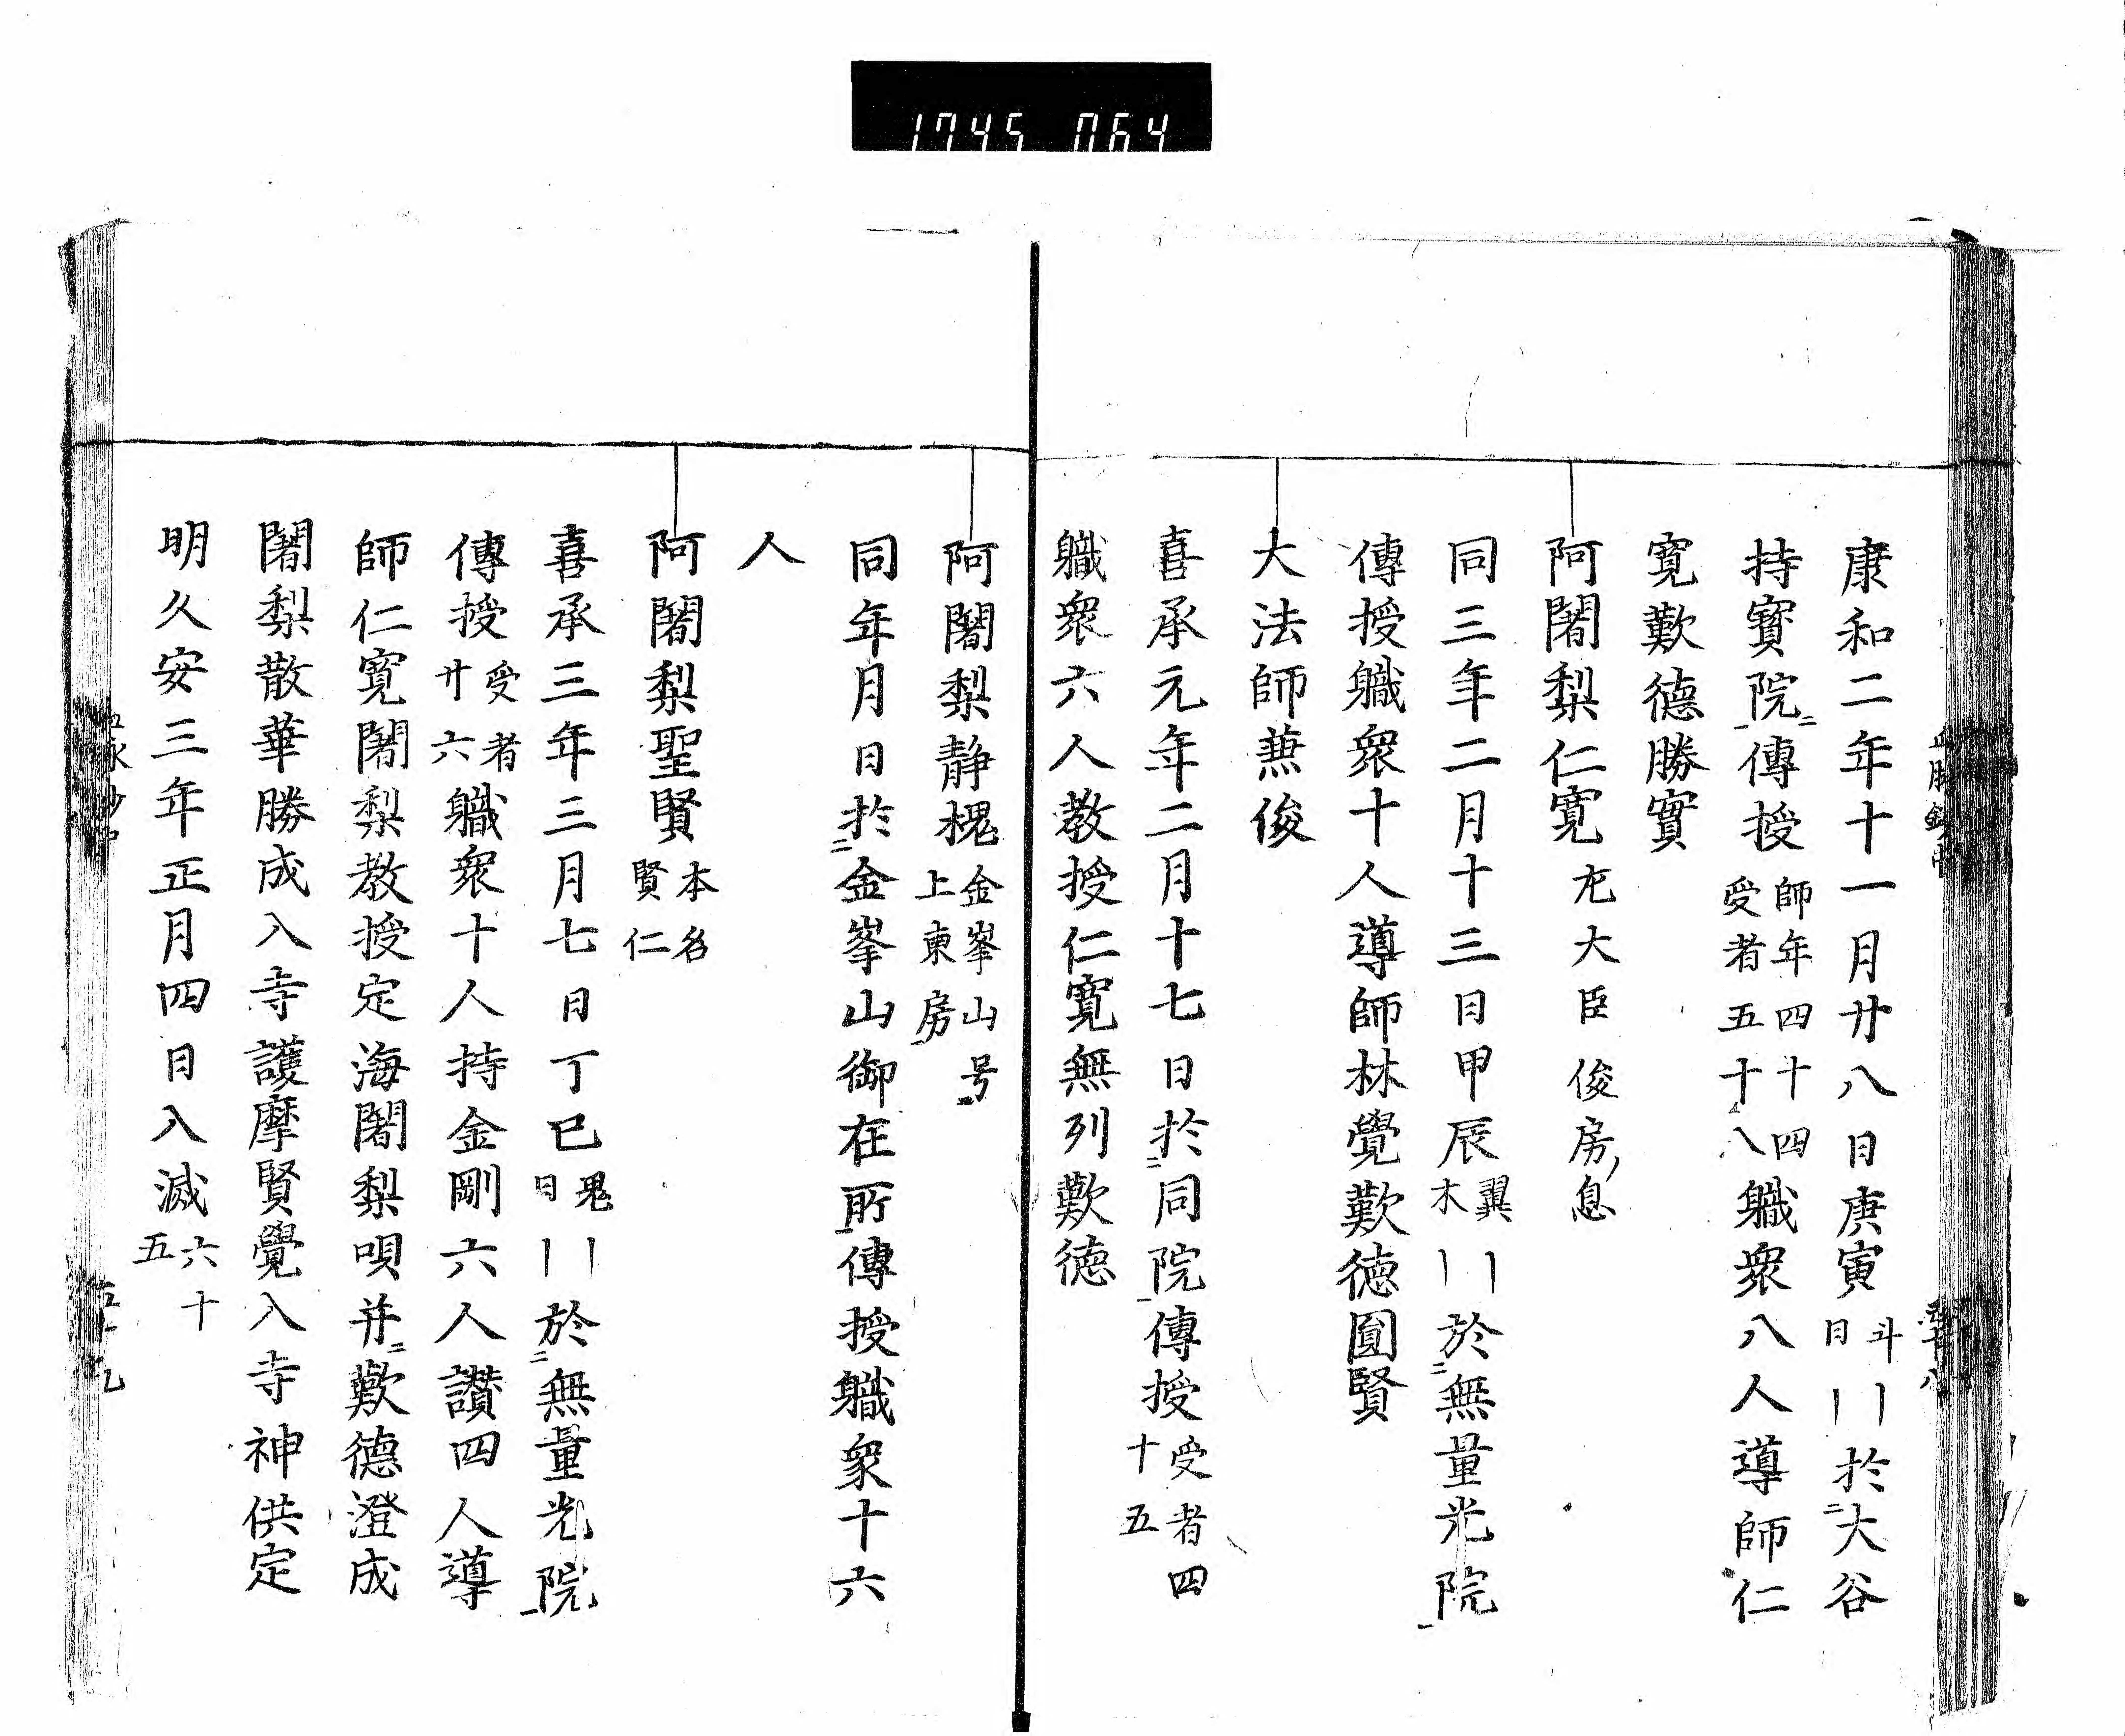 1745 064
康和二年十一月廿八日庚寅斗日〡〡於二大谷
持寳院一傳授師年四十四受者五十八職衆八人導師仁
寛歎德勝實
阿闍梨仁寛左大臣俊房息
同三年二月十三日甲辰翼木〡〡於二無量光院一
傳授職衆十人導師林覺歎德圓賢
大法師兼俊
喜承元年二月十七日於二同院一傳授受者四十五
職衆六人教授仁寛無列歎德
阿闍梨静槐金峯山号上東房
同年月日於二金峯山御在所一傳授職衆十六
人
阿闍梨聖賢本名賢仁
喜承三年三月七日丁巳鬼日〡〡於二無量光院一
傳授受者廿六職衆十人持金剛六人讃四人導
師仁寛闍梨教授定海闍梨唄并二歎德澄成
闍梨散華勝成入寺護摩賢覺入寺神供定
明久安三年正月四日入滅六十五